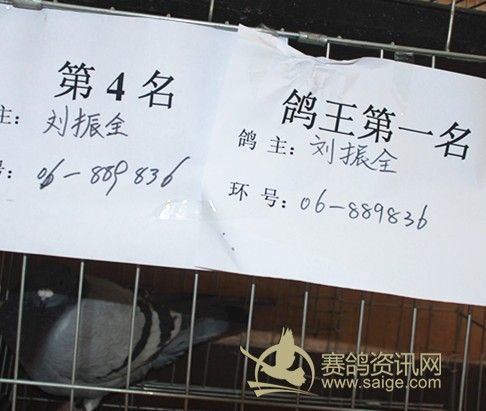 第4名
主：刘振全
号：06-889836
鸽王第一名
鸽主：刘振全
环号：06-889836
赛鸽资讯网
www.saige.com